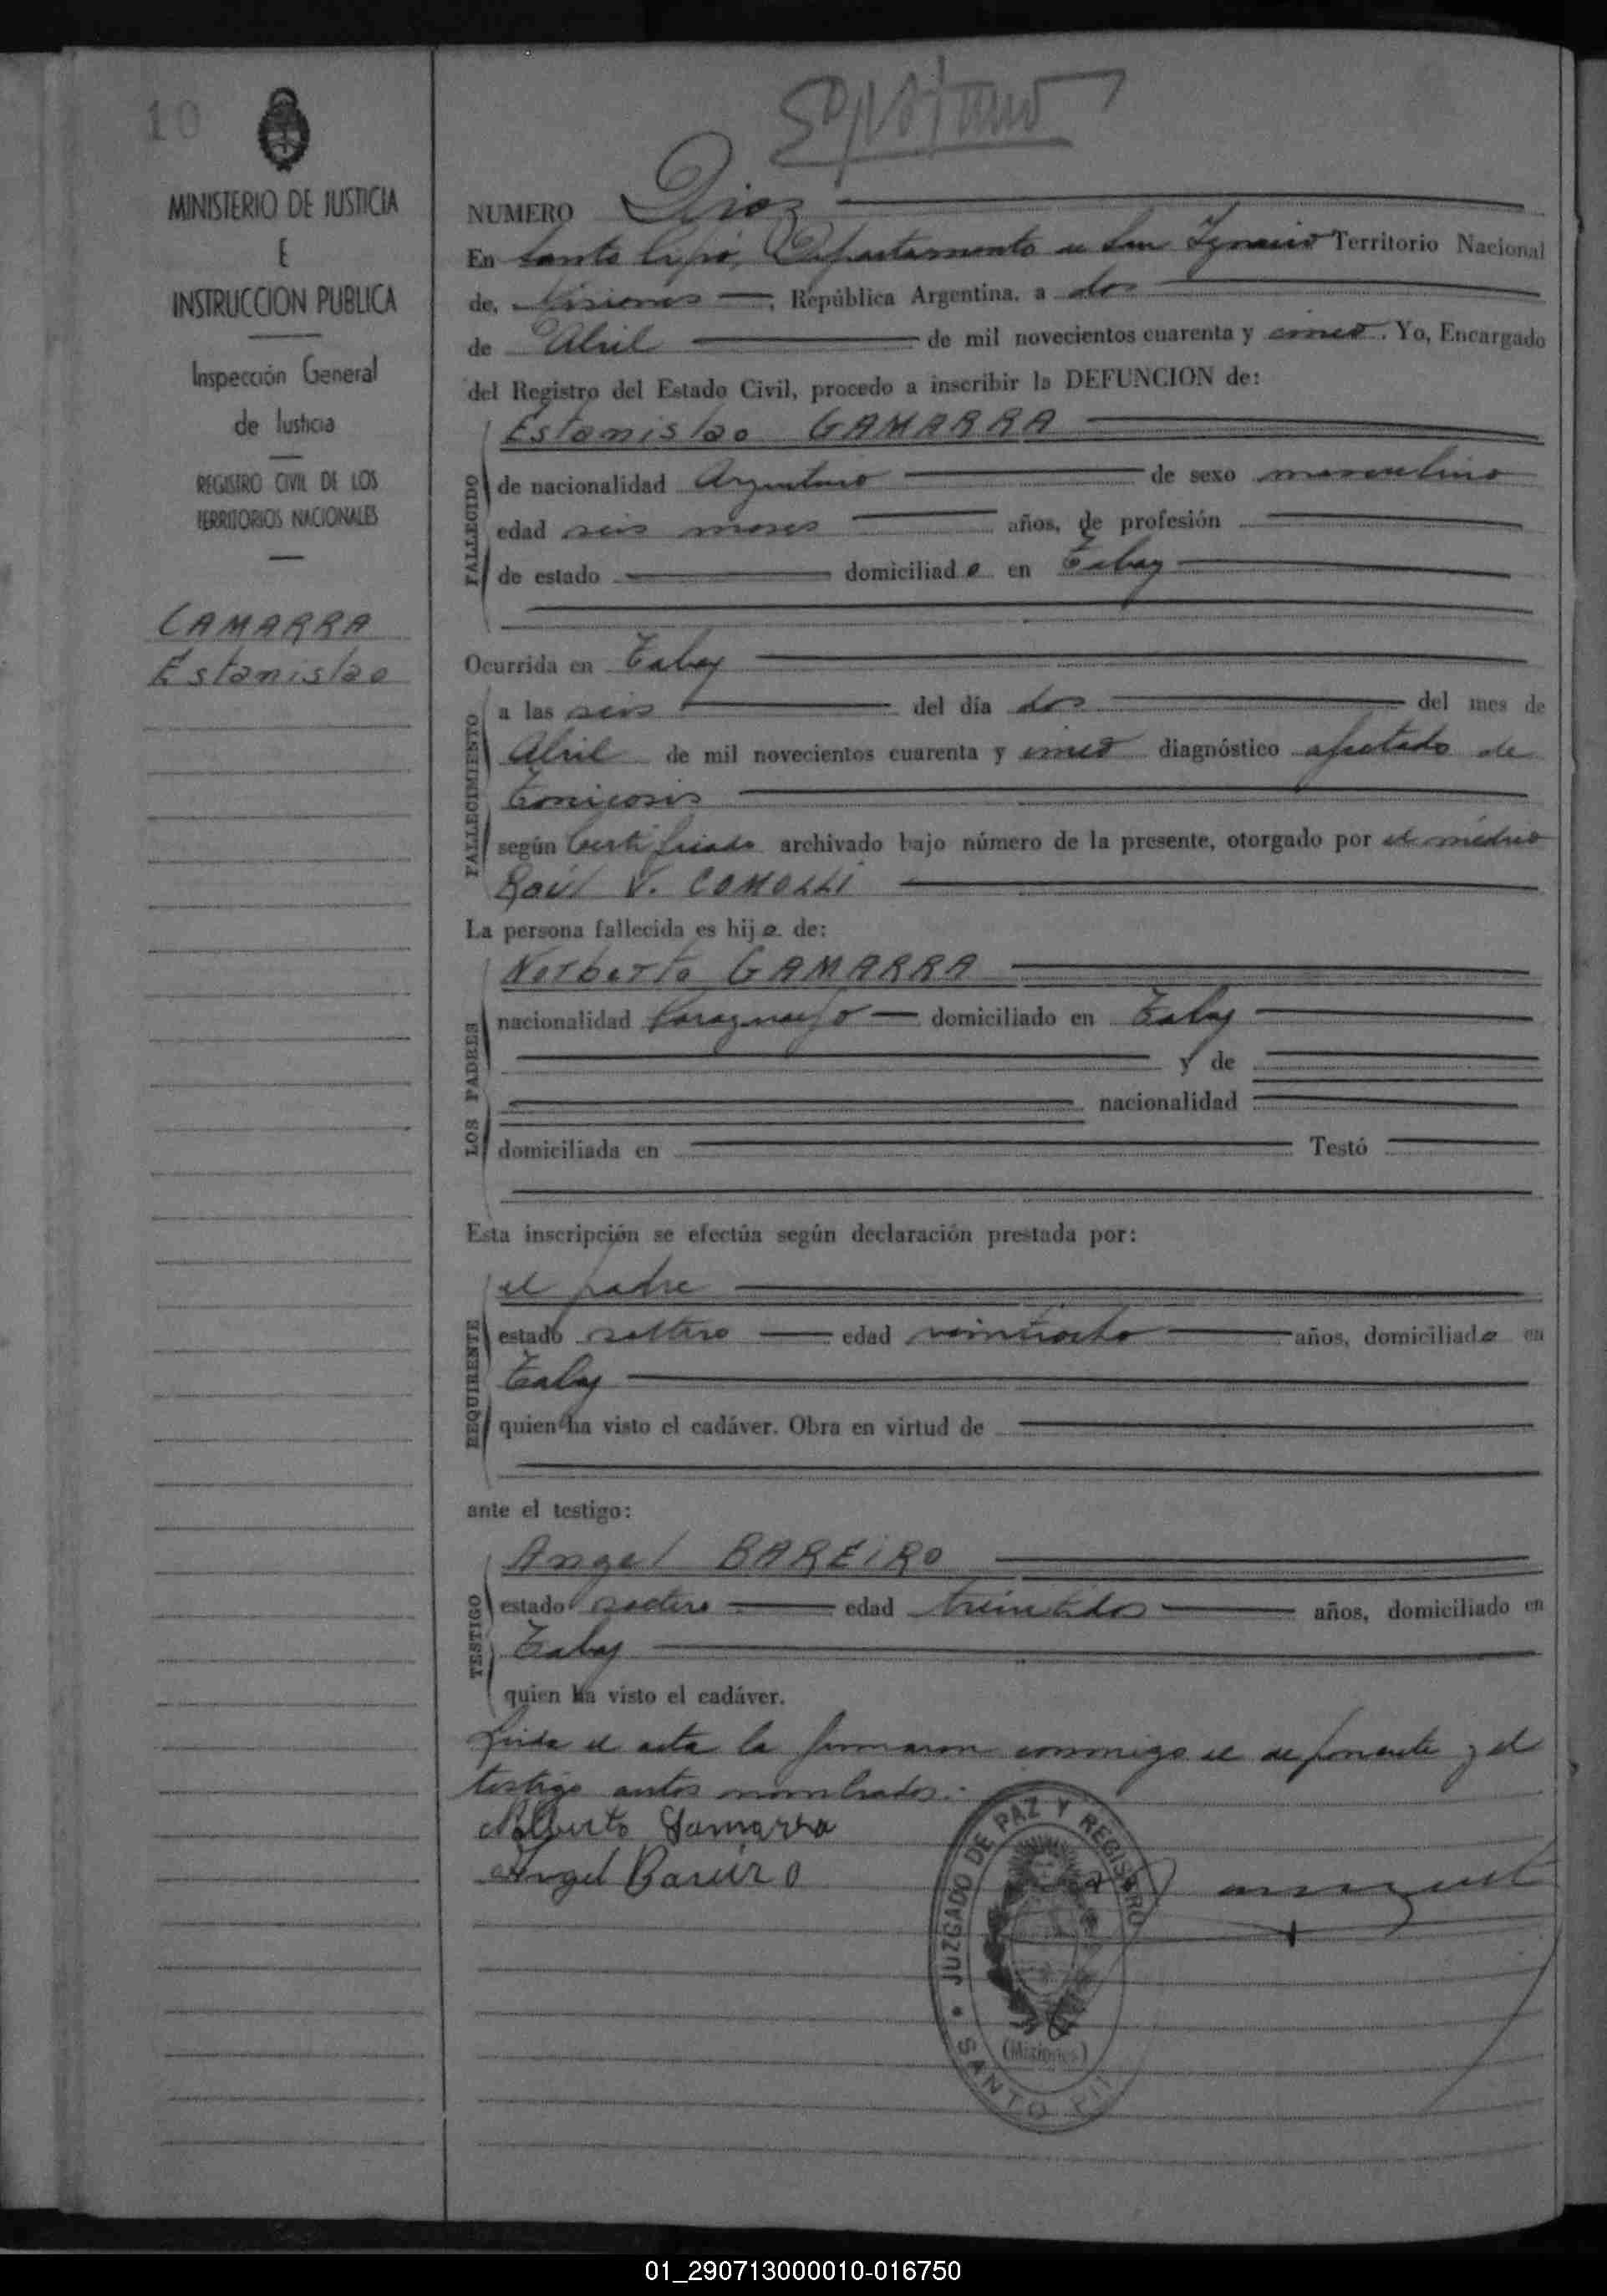 10
MINISTERIO DE JUSTICIA
E
INSTRUCCION PUBLICA
Inspección General
de Justicia
REGISTRO CIVIL DE LOS
TERRITORIOS NACIONALES
GAMARRA
Estanislao
NUMERO Diez
En Santo Pipó, Departamento de San Ignacio Territorio Nacional
de, Misiones, República Argentina, a dos
de Abril de mil novecientos cuarenta y cinco. Yo, Encargado
del Registro del Estado Civil, procedo a inscribir la DEFUNCION de:
Estanislao GAMARRA
FALLECIDO
de nacionalidad Argentino de sexo masculino
edad seis meses años, de profesión
de estado domiciliado en Tabay
Ocurrida en Tabay
FALLECIMIENTO
a las seis del día dos del mes de
Abril de mil novecientos cuarenta y cinco diagnóstico afectado de
según Certificado archivado bajo número de la presente, otorgado por el médico
Raúl V. COMOLLI
La persona fallecida es hijo de:
LOS PADRES
Norberto GAMARRA
nacionalidad Paraguayo domiciliado en Tabay
y de
nacionalidad
domiciliada en Testó
Esta inscripción se efectúa según declaración prestada por:
REQUIRENTE
el padre
estado soltero edad veintiocho años, domiciliado en
Tabay
quien ha visto el cadáver. Obra en virtud de
ante el testigo:
TESTIGO
Angel BAREIRO
estado soltero edad treintidos años, domiciliado en
Tabay
quien ha visto el cadáver.
Leida el acta la firmaron conmigo el deponente y el
testigo antes nombrados.
Norberto Gamarra
Angel Bareiro
JUZGADO DE PAZ Y REGISTRO
(Misiones)
SANTO
01_290713000010-016750